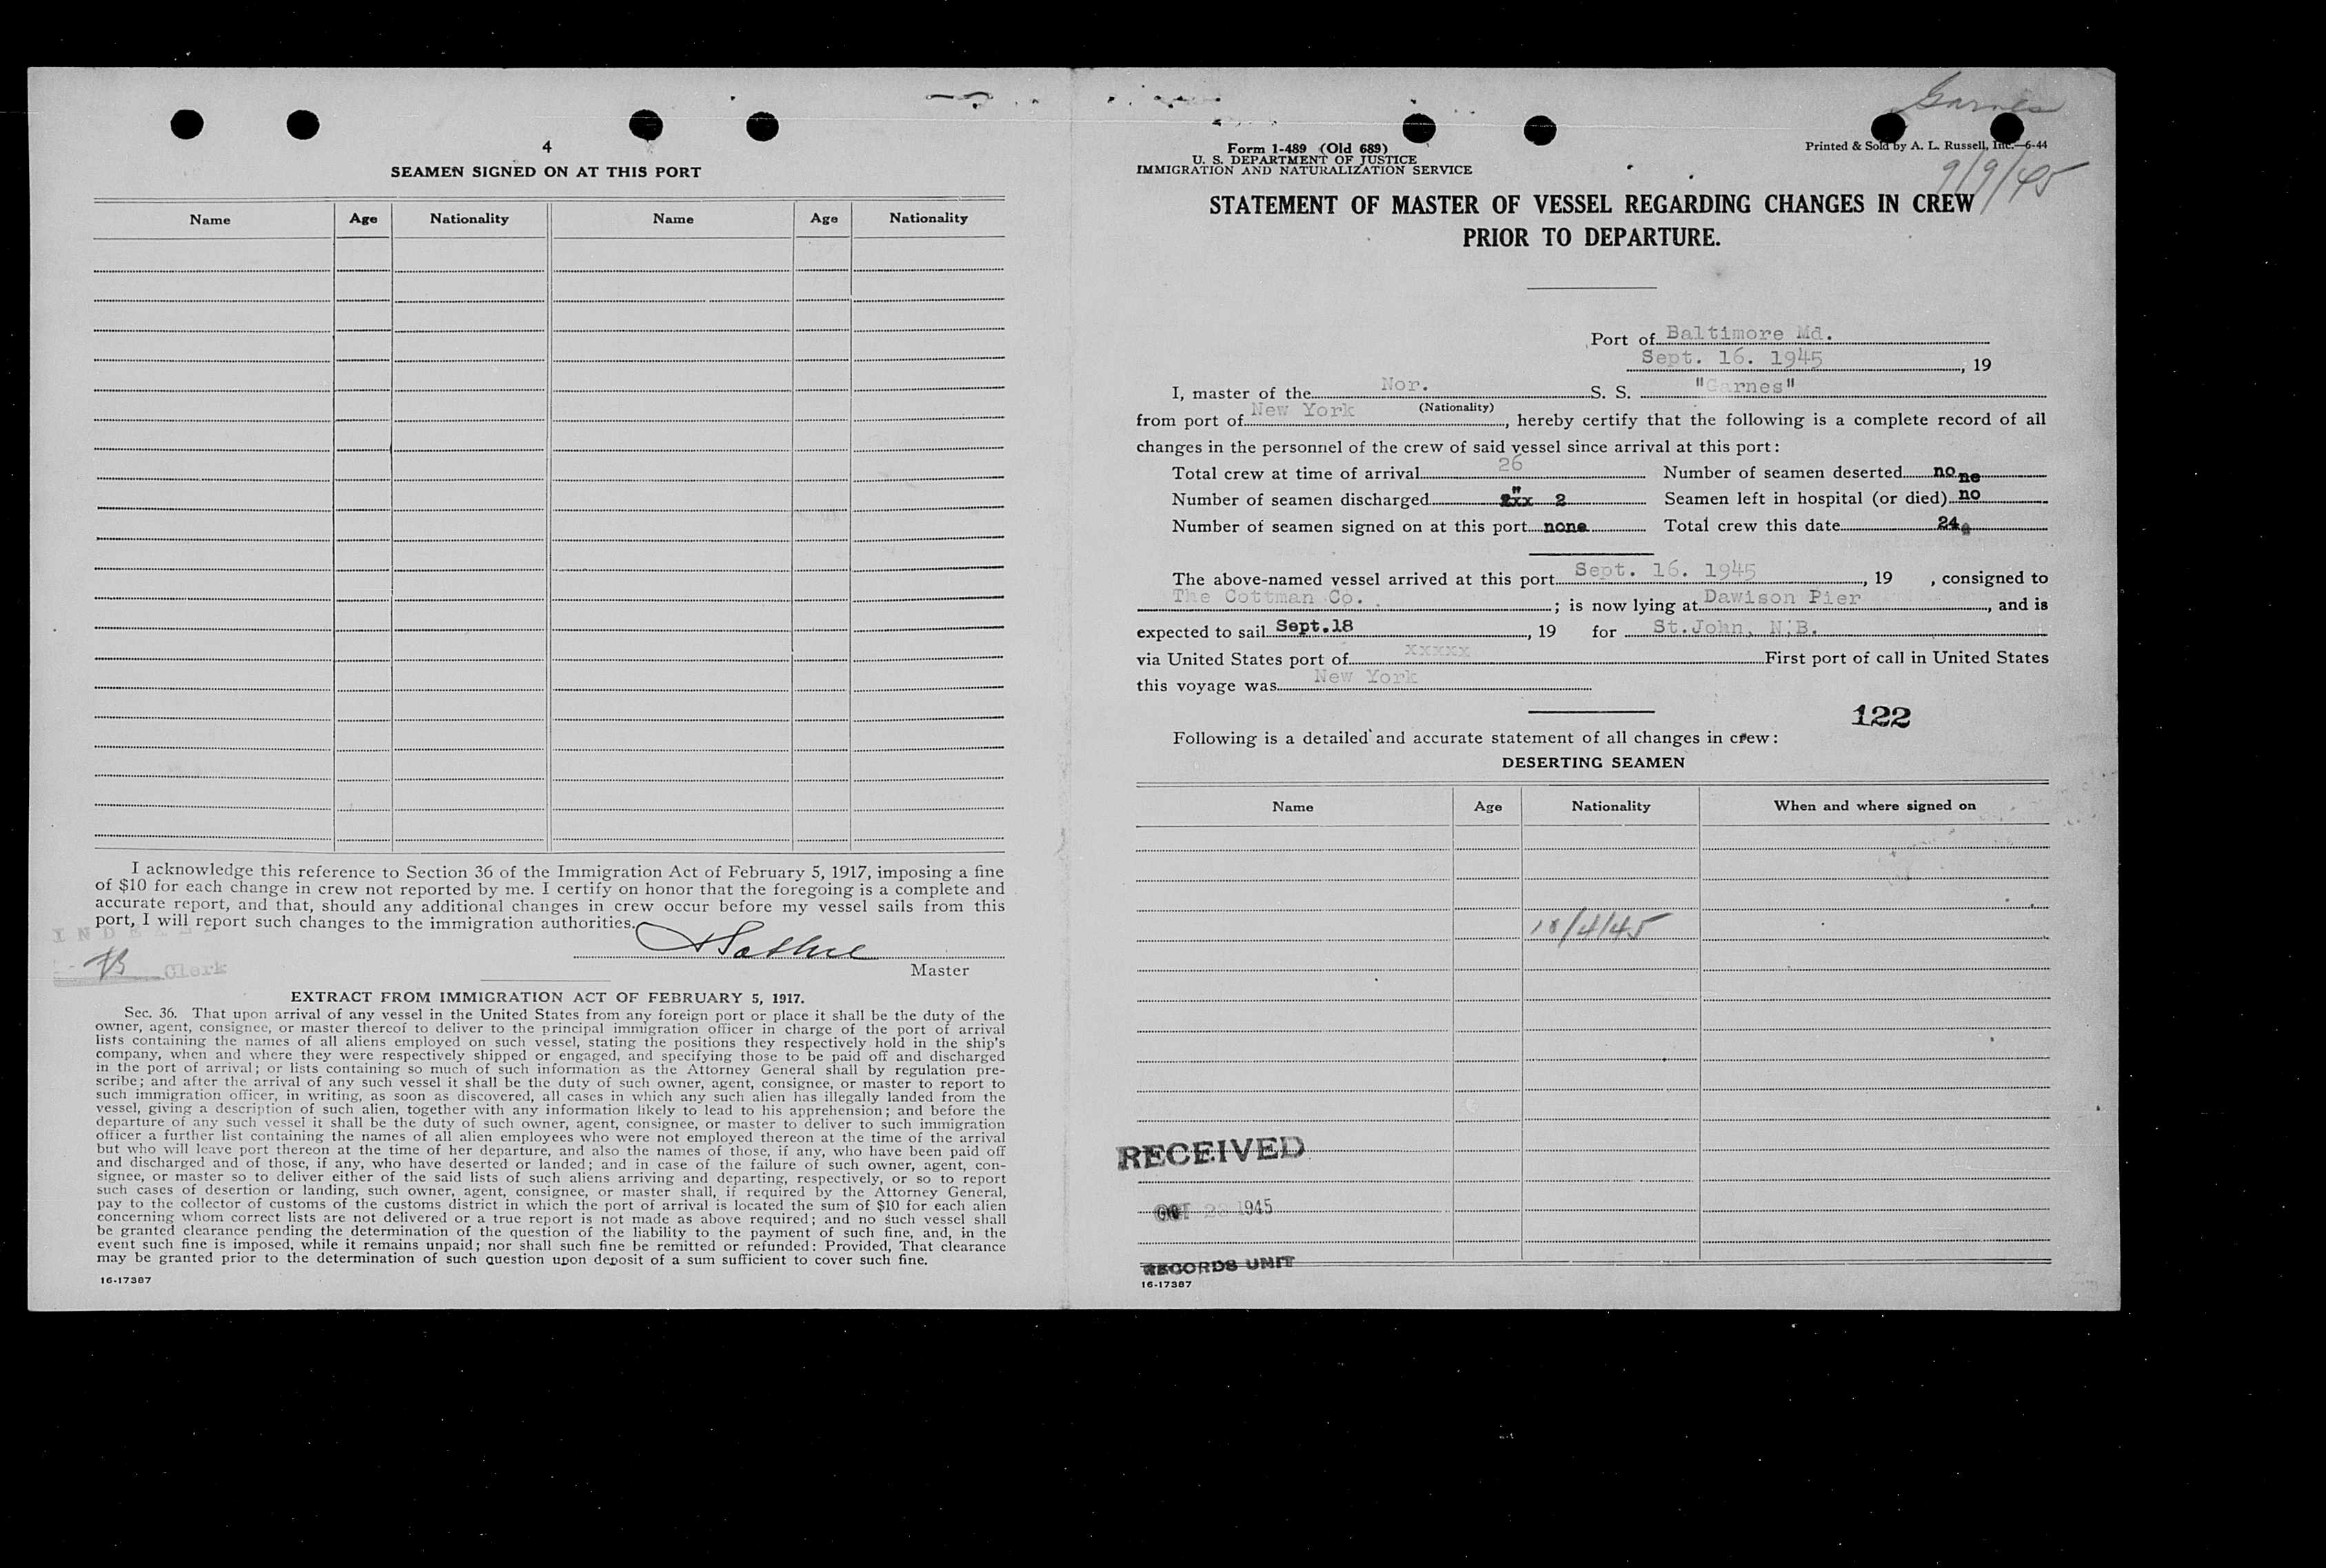 4
SEAMEN SIGNED ON AT THIS PORT
Name Age Nationality Name Age Nationality
I acknowledge this reference to Section 36 of the Immigration Act of February 5, 1917, imposing a fine
of $10 for each change in crew not reported by me. I certify on honor that the foregoing is a complete and
accurate report, and that, should any additional changes in crew occur before my vessel sails from this
port, I will report such changes to the immigration authorities.
Clerk
Master
EXTRACT FROM IMMIGRATION ACT OF FEBRUARY 5, 1917.
Sec. 36. That upon arrival of any vessel in the United States from any foreign port or place it shall be the duty of the
owner, agent, consignee, or master thereof to deliver to the principal immigration officer in charge of the port of arrival
lists containing the names of all aliens employed on such vessel, stating the positions they respectively hold in the ship's
company, when and where they were respectively shipped or engaged, and specifying those to be paid off and discharged
in the port of arrival; or lists containing so much of such information as the Attorney General shall by regulation pre-
scribe; and after the arrival of any such vessel it shall be the duty of such owner, agent, consignee, or master to report to
such immigration officer, in writing, as soon as discovered, all cases in which any such alien has illegally landed from the
vessel, giving a description of such alien, together with any information likely to lead to his apprehension; and before the
departure of any such vessel it shall be the duty of such owner, agent, consignee, or master to deliver to such immigration
officer a further list containing the names of all alien employees who were not employed thereon at the time of the arrival
but who will leave port thereon at the time of her departure, and also the names of those, if any, who have been paid off
and discharged and of those, if any, who have deserted or landed; and in case of the failure of such owner, agent, con-
signee, or master so to deliver either of the said lists of such aliens arriving and departing, respectively, or so to report
such cases of desertion or landing, such owner, agent, consignee, or master shall, if required by the Attorney General,
pay to the collector of customs of the customs district in which the port of arrival is located the sum of $10 for each alien
concerning whom correct lists are not delivered or a true report is not made as above required; and no such vessel shall
be granted clearance pending the determination of the question of the liability to the payment of such fine, and, in the
event such fine is imposed, while it remains unpaid; nor shall such fine be remitted or refunded: Provided, That clearance
may be granted prior to the determination of such question upon deposit of a sum sufficient to cover such fine.
16-17387
Garnes
Form 1-489 (Old 689)
U. S. DEPARTMENT OF JUSTICE
IMMIGRATION AND NATURALIZATION SERVICE
Printed & Sold by A. L. Russell, Inc.—6-44
9/9/45
STATEMENT OF MASTER OF VESSEL REGARDING CHANGES IN CREW
PRIOR TO DEPARTURE.
Port of Baltimore Md.
Sept. 16. 1945, 19
I, master of the Nor. S. S. "Garnes"
(Nationality)
from port of New York, hereby certify that the following is a complete record of all
changes in the personnel of the crew of said vessel since arrival at this port:
Total crew at time of arrival 26 Number of seamen deserted none
Number of seamen discharged 2 Seamen left in hospital (or died) no
Number of seamen signed on at this port none Total crew this date 24
The above-named vessel arrived at this port Sept. 16. 1945, 19 , consigned to
The Cottman Co. ; is now lying at Dawison Pier, and is
expected to sail Sept.18, 19 for St.John, N.B.
via United States port of xxxxx First port of call in United States
this voyage was New York
122
Following is a detailed and accurate statement of all changes in crew:
DESERTING SEAMEN
Name Age Nationality When and where signed on
10/4/45
RECEIVED
OCT 1945
RECORDS UNIT
16-17387